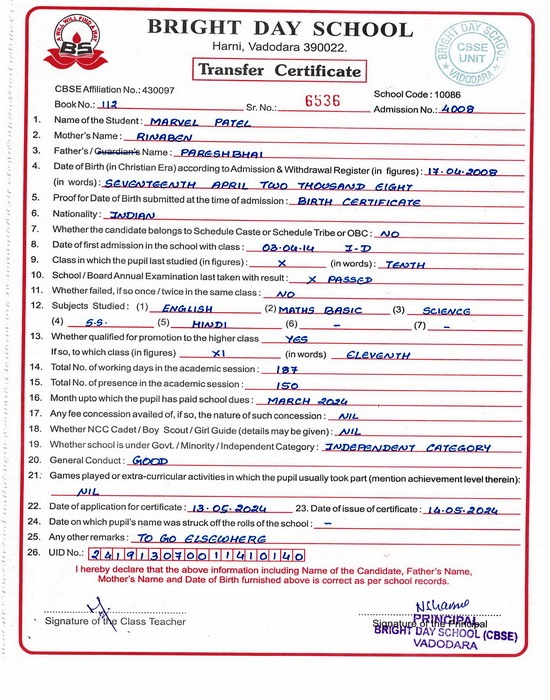 A WILL WILL FIND A WAY
BS
BRIGHT DAY SCHOOL
Harni, Vadodara 390022.
Transfer Certificate
BRIGHT DAY SCHOOL
CBSE
UNIT
VADODARA
CBSE Affiliation No.: 430097
School Code : 10086
Book No.: 112 Sr. No.: 6536 Admission No.: 4008
1. Name of the Student : MARVEL PATEL
2. Mother's Name : RINABEN
3. Father's / Guardian's Name : PARESHBHAI
4. Date of Birth (in Christian Era) according to Admission & Withdrawal Register (in figures) : 17.04.2008
(in words) : SEVENTEENTH APRIL TWO THOUSAND EIGHT
5. Proof for Date of Birth submitted at the time of admission : BIRTH CERTIFICATE
6. Nationality : INDIAN
7. Whether the candidate belongs to Schedule Caste or Schedule Tribe or OBC : NO
8. Date of first admission in the school with class : 03.04.14 I-D
9. Class in which the pupil last studied (in figures) : X (in words) : TENTH
10. School / Board Annual Examination last taken with result : X PASSED
11. Whether failed, if so once / twice in the same class : NO
12. Subjects Studied : (1) ENGLISH (2) MATHS BASIC (3) SCIENCE
(4) S.S. (5) HINDI (6) – (7) –
13. Whether qualified for promotion to the higher class : YES
If so, to which class (in figures) XI (in words) ELEVENTH
14. Total No. of working days in the academic session : 187
15. Total No. of presence in the academic session : 150
16. Month upto which the pupil has paid school dues : MARCH 2024
17. Any fee concession availed of, if so, the nature of such concession : NIL
18. Whether NCC Cadet / Boy Scout / Girl Guide (details may be given) : NIL
19. Whether school is under Govt. / Minority / Independent Category : INDEPENDENT CATEGORY
20. General Conduct : GOOD
21. Games played or extra-curricular activities in which the pupil usually took part (mention achievement level therein) :
NIL
22. Date of application for certificate : 13.05.2024 23. Date of issue of certificate : 14.05.2024
24. Date on which pupil's name was struck off the rolls of the school : –
25. Any other remarks : TO GO ELSEWHERE
26. UID No.: 241913070011410140
I hereby declare that the above information including Name of the Candidate, Father's Name,
Mother's Name and Date of Birth furnished above is correct as per school records.
Signature of the Class Teacher
Signature of the Principal
PRINCIPAL
BRIGHT DAY SCHOOL (CBSE)
VADODARA